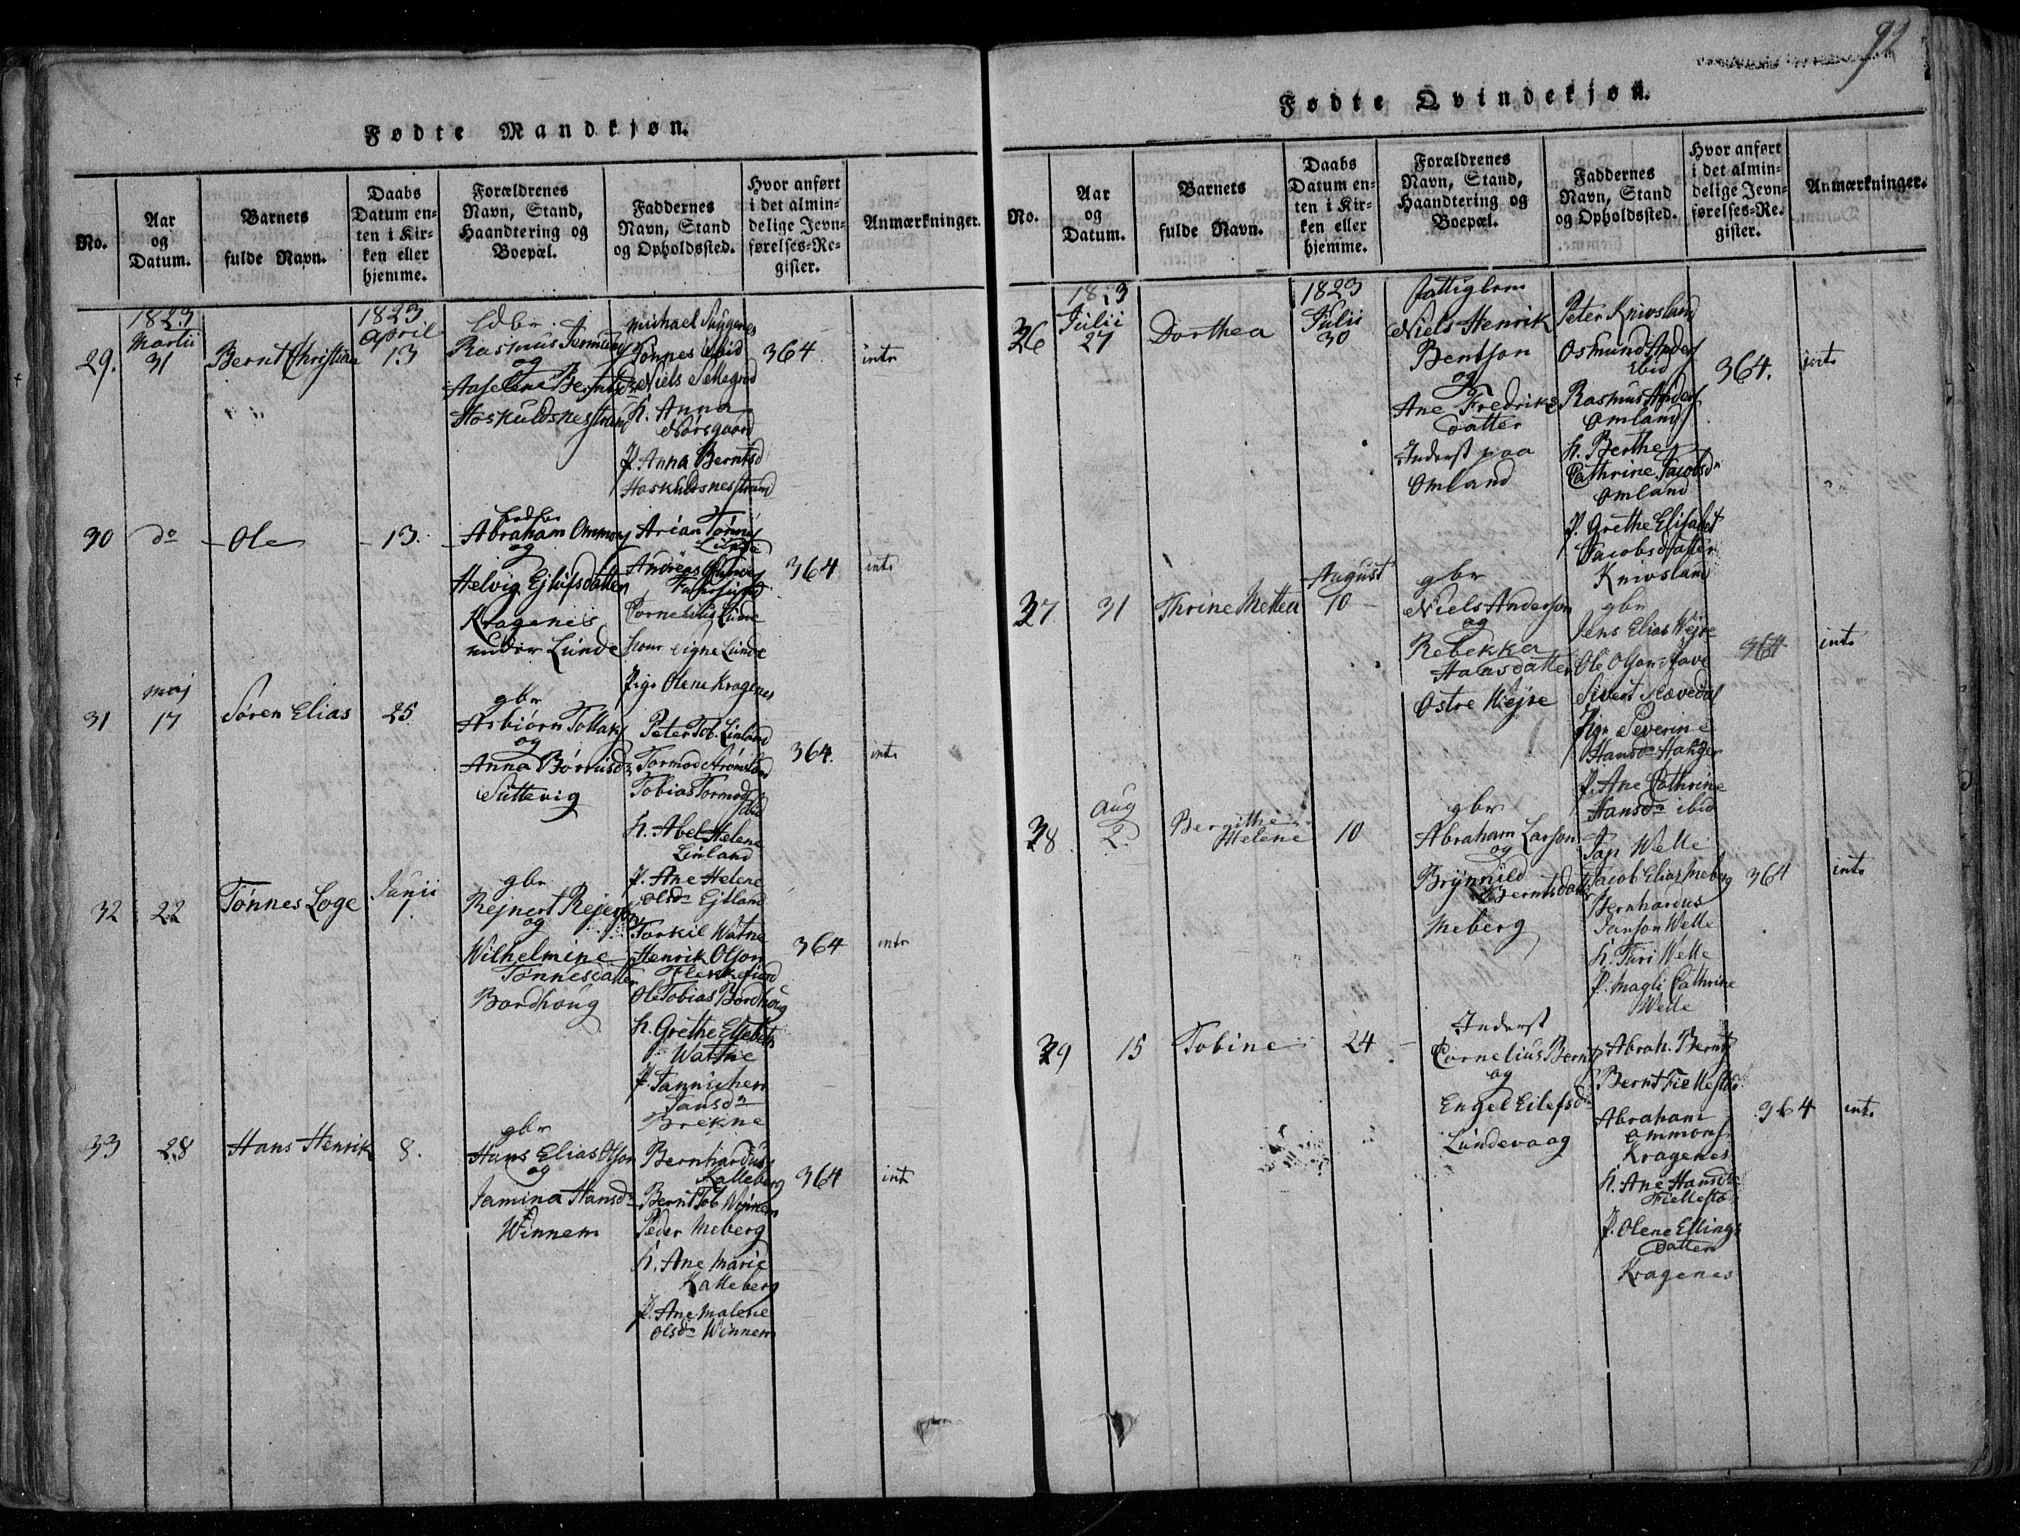 92
Fødte Mandkjøn.
No.
Aar
og
Datum.
Barnets
fulde Navn.
Daabs
Datum en-
ten i Kir-
ken eller
hjemme.
Forældrenes
Navn, Stand,
Haandtering og
Boepæl.
Faddernes
Navn, Stand
og Opholdssted.
Hvor anført
i det almin-
delige Jevn-
førelses-Re-
gister.
Anmærkninger.
29.
1823
Martii
31
Bernt Christian
1823
April
13
Rasmus
og
Aaselene Berntsd
Hoskuldsnesstrand
Michael
Tønnes ibid
Niels
k. Anna
Norsgaard
P. Anna Berntsd
Hoskuldsnesstrand
364
intr
30
do
Ole
13.
Abraham Ommon
og
Helvig Ejlifsdatter
Kragenes
under Lunde
Arian Tønnes
Lunde
Andreas
Cornelius Lunde
Kone Signe Lunde
Pige Olene Kragenes
364
intr
31
maj
17
Søren Elias
25.
gbr
Asbiørn Tollaks
og
Anna Børrusd
Sittevig
Peter Tob. Linland
Tormod
Tobias Tormods
ibid
k. Abel Helene
Linland
P. Ane Helene
Olsdn Ejtland
364.
intr
32
22
Tønnes Loge
Junii
1.
gbr
Rejnert Rejerson
og
Wilhelmine
Tønnesdatter
Bordhoug
Torkil Watne
Henrik Olson
Flekkefiord
Ole Tobias Bordhoug
k. Grethe Elisabeth
Watne
P.
Jansdn
Brekne
364
intr
33
28
Hans Henrik
8.
gbr
Hans Elias Olson
og
Jamina Hansdn
Winnem
Bernhardus
Kalleberg
Bernt Tob Winnem
Peder Meberg
k. Ane Marie
Kalleberg
P. Ane Malene
Olsdn Winnem
364
intr
Fødte Qvindekjøn.
No.
Aar
og
Datum.
Barnets
fulde Navn.
Daabs
Datum en-
ten i Kir-
ken eller
hjemme.
Forældrenes
Navn, Stand,
Haandtering og
Boepæl.
Faddernes
Navn, Stand
og Opholdssted.
Hvor anført
i det almin-
delige Jevn-
førelses-Re-
gister.
Anmærkninger.
26
1823
Julii
27
Dorthea
1823
Julii
30
Fattiglem
Niels Henrik
Bentson
og
Ane Fredriks
datter
Inderst paa
Omland
Peter Knivsland
Osmund Anders
ibid
Rasmus Anders
Omland
k. Berthe
Cathrine Jacobsdn
Omland
P. Grethe Elisabet
Jacobsdatter
Knivsland
364.
intr
27
31
Thrine Mettea
August
10
gbr
Niels Anderson
og
Rebekka
Hansdatter
Østre Wejre
gbr
Jens Elias Wejre
Ole Olson
Sivert
Pige Severine
Hansdn
P. Ane Cathrine
Hansdn ibid
364
intr
28
Aug
2.
Bergithe
Helene
10
gbr
Abraham Larson
og
Brynnild
Berntsdatter
Meberg
Jap Welle
Jacob Elias Meberg
Bernhardus
Janson Welle
k. Turi Welle
P. Magli Cathrine
Welle
364
intr
29
15
Tobine
24
Inderst
Cornelius Bernts
og
Engel Eilefsdn
Lundevaag
Abrah. Bernts
Bernt Fiellestad
Abraham
Ommons
Kragenes
k. Ane Hansd
Fiellestad
P. Olene Ellings
datter
Kragenes
364
intr